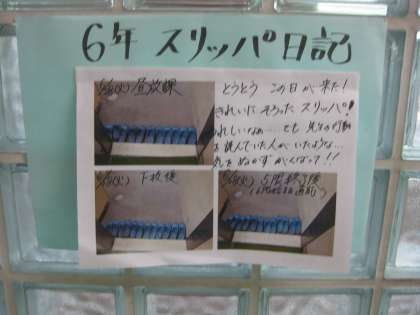 6年 スリッパ日記
5/8(火) 昼放課
とうとう この日が来た!
きれいに そろった スリッパ!
うれしいなぁ… でも 先生の行動
を読んでいた人がいたような…
気をぬかず がんばって!!
5/8(火) 下校後
5/8(火) 5限終了後